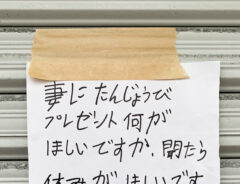 妻に たんじょうび
プレゼント何が
ほしいですか、聞たら
休みが ほしいです